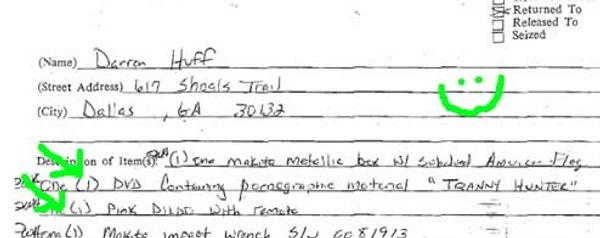 Returned To
Released To
Seized
(Name) Darren Huff
(Street Address) 617 Shoals Trail
(City) Dallas, GA 30132
Description of Item(s): (1) One makita metallic box w/ American Flag
One (1) DVD Containing pornographic material "TRANNY HUNTER"
(1) PINK DILDO with remote
(1) Makita impact wrench S/N